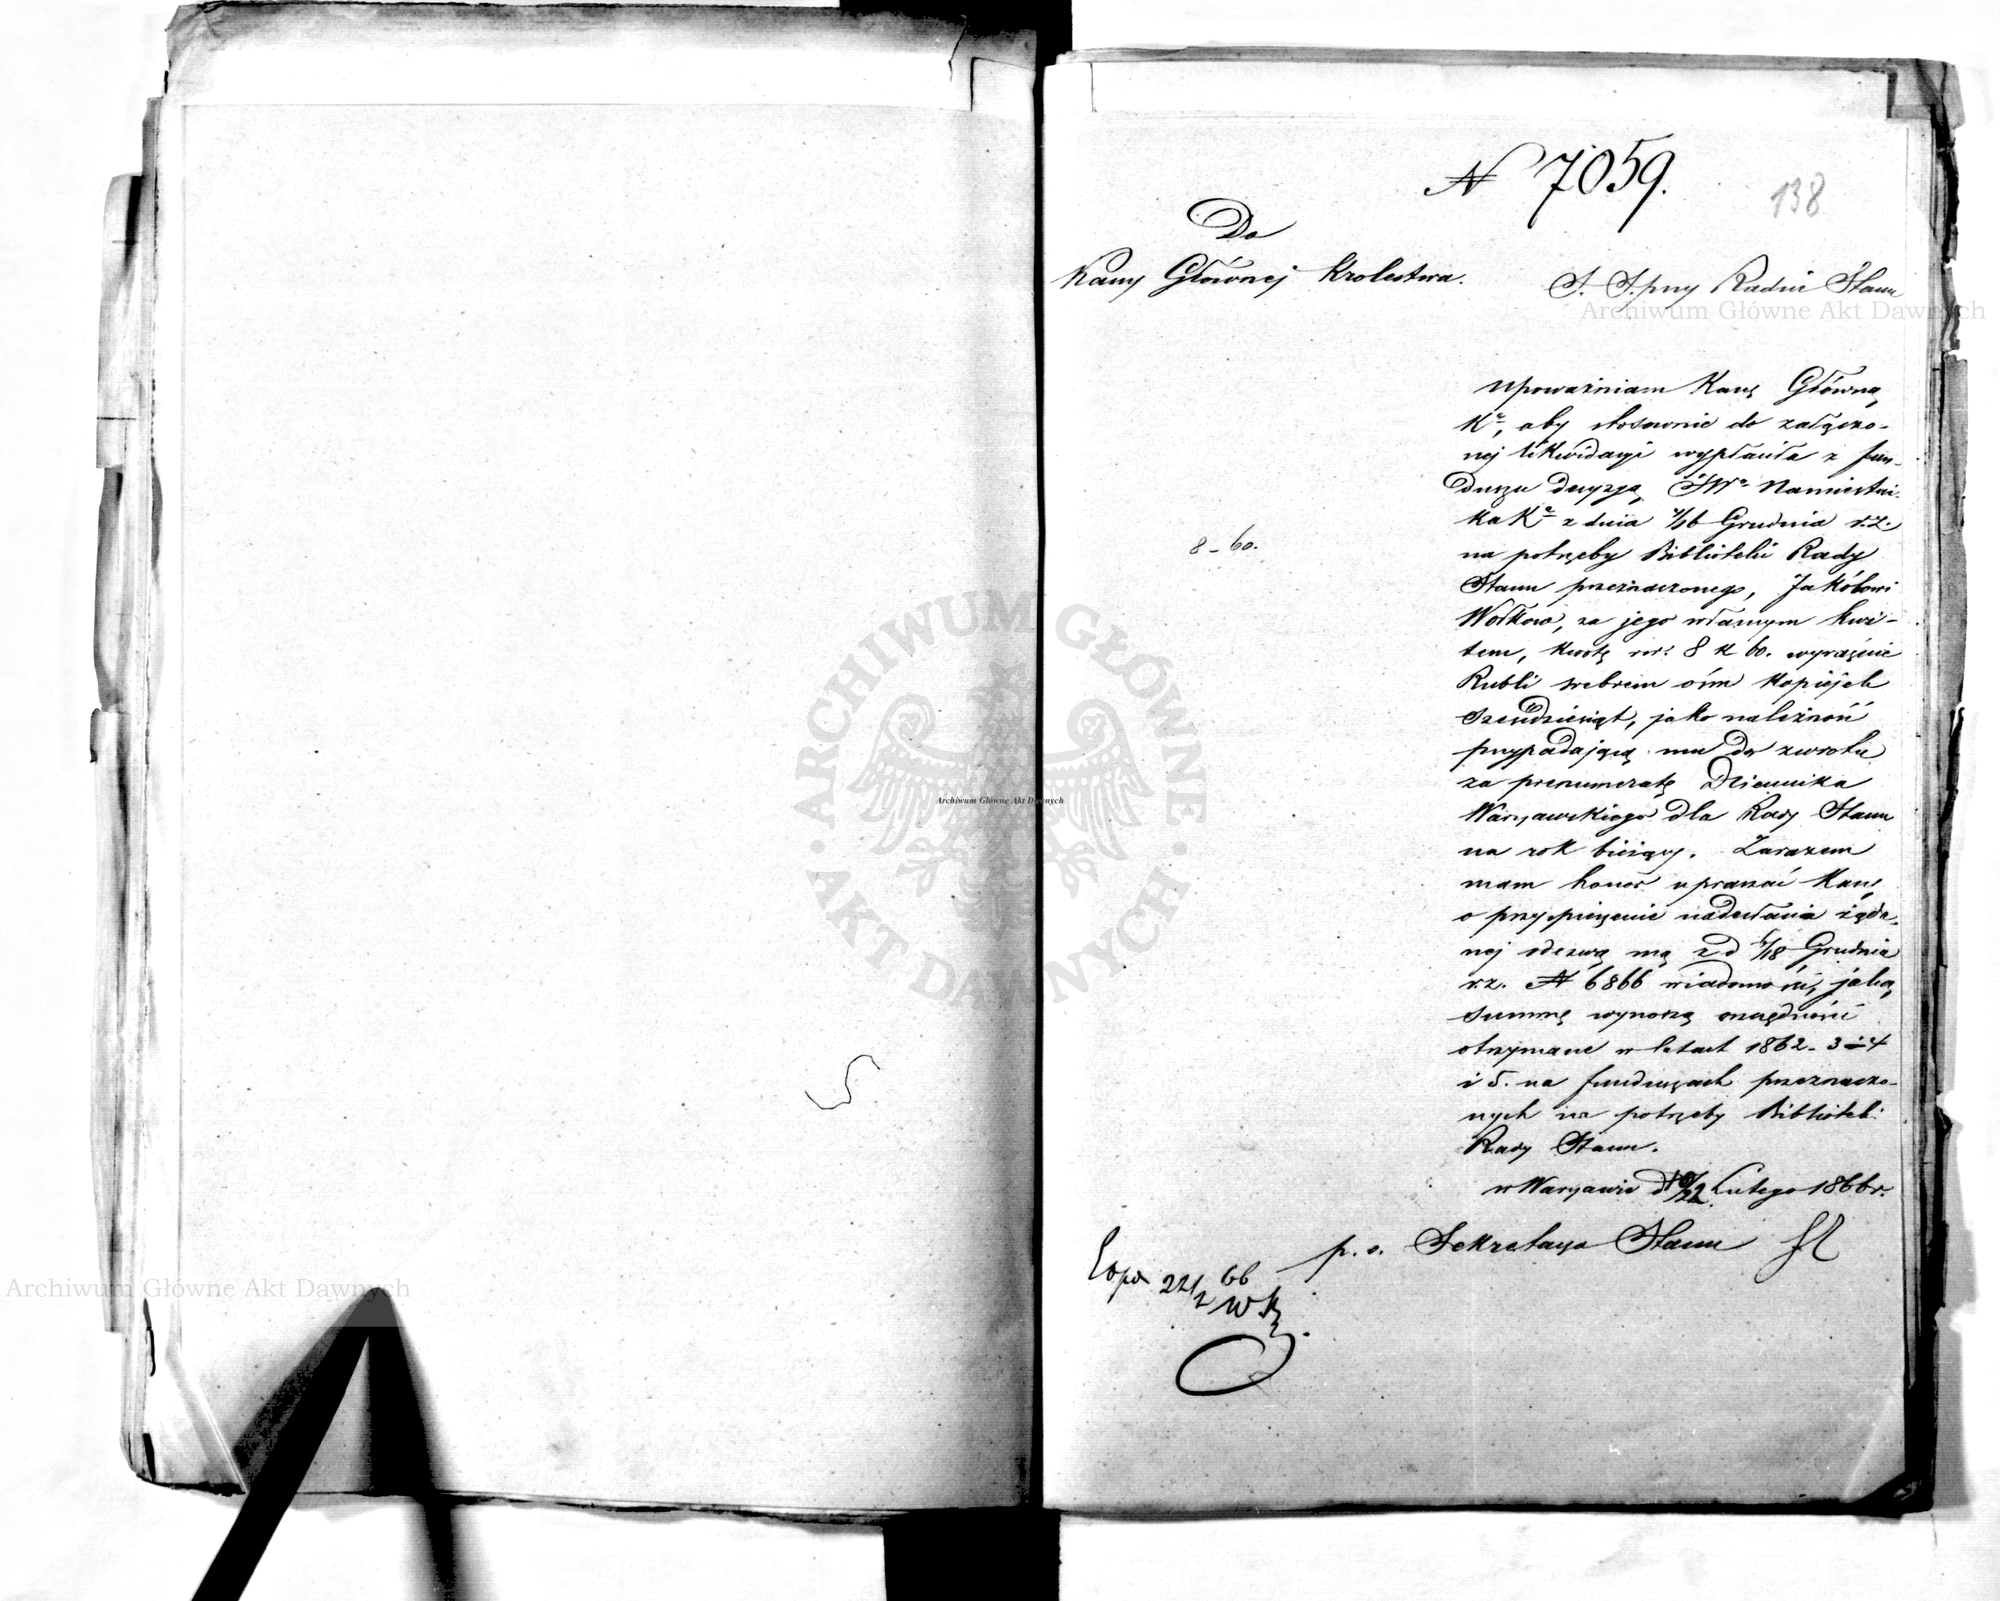 № 7059.
138
Do
Kassy Głównej Krolestwa.
S. S. przy Radzie Stanu
Upoważniam Kassę Główną
Kª, aby stosownie do załączo-
nej likwidacyi wypłaciła z fun-
duszu decyzją Namiestni-
ka Kª z dnia 4/16 Grudnia r.z.
na potrzeby Biblioteki Rady
Stanu przeznaczonego, Jakóbowi
Wołkow, za jego własnym kwi-
tem, kwotę rsr. 8 k 60. wyraźnie
Rubli srebrem ośm kopiejek
sześdziesiąt, jako należność
przypadającą mu do zwrotu
za prenumeratę Dziennika
Warszawskiego dla Rady Stanu
na rok bieżący. Zarazem
mam honor upraszać Kassę
o przyspieszenie nadesłania żąda-
nej odezwą mą z d 6/18 Grudnia
r.z. № 6866 wiadomości, jaką
summę wynoszą oszczędności
otrzymane w latach 1862. 3. 4
i 5. na funduszach przeznaczo-
nych na potrzeby Bibliotek
Rady Stanu.
w Warszawie d 10/22 Lutego 1866 r.
8 - 60.
p. o. Sekretarza Stanu
22/2 66
Archiwum Główne Akt Dawnych
Archiwum Główne Akt Dawnych
Archiwum Główne Akt Dawnych
ARCHIWUM GŁÓWNE
AKT DAWNYCH